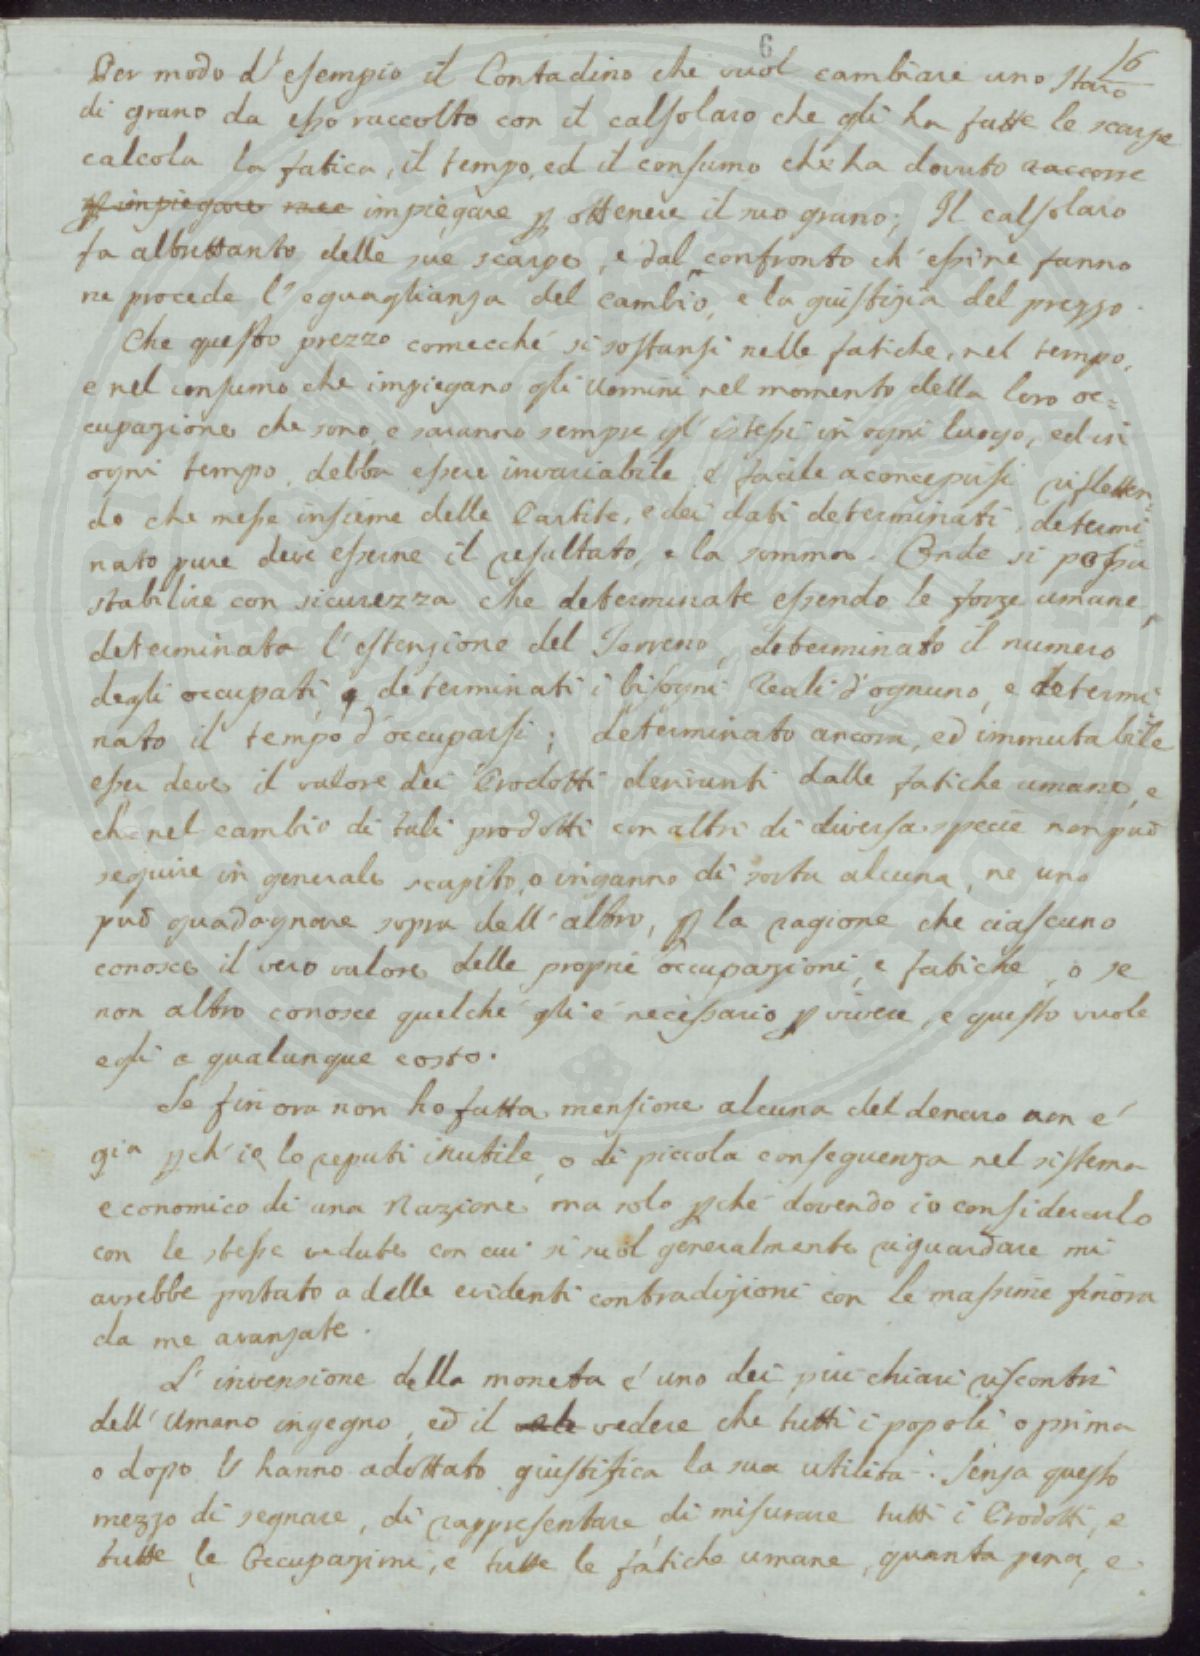 6
16
Per modo d'esempio il Contadino che vuol cambiare uno staro
di grano da esso raccolto con il calsolaro che gli ha fatte le scarpe
calcola la fatica, il tempo, ed il consumo che ha dovuto raccorre
p impiegare impiegare p ottenere il suo grano; Il calsolaro
fa altrettanto delle sue scarpe, e dal confronto ch'essi ne fanno
ne procede l'eguaglianza del cambio, e la giustizia del prezzo.
Che questo prezzo comecché si sostansi nelle fatiche, nel tempo,
e nel consumo che impiegano gli Uomini nel momento della loro oc=
cupazione che sono, e saranno sempre gl'istessi in ogni luogo, ed in
ogni tempo, debba essere invariabile é facile a concepirsi rifletten=
do che messe insieme delle Partite, e dei dati determinati, determi
nato pure deve esserne il resultato, e la somma. Onde si possa
stabilire con sicurezza che determinate essendo le forze umane,
determinata l'estenzione del Terreno, determinato il numero
degli occupati, e determinati i bisogni reali d'ognuno, e determi
nato il tempo d'occuparsi; determinato ancora, ed immutabile
esser deve il valore dei Prodotti derivanti dalle fatiche umane, e
che nel cambio di tali prodotti con altri di diversa specie non può
seguire in generale scapito, o inganno di sorta alcuna, ne uno
può guadagnare sopra dell'altro, p la ragione che ciascuno
conosce il vero valore delle proprie occupazioni, e fatiche, o se
non altro conosce quelché gli é necessario p vivere, e questo vuole
egli a qualunque costo.
Se fin ora non ho fatta mensione alcuna del denaro non é
gia pch'io lo reputi inutile, o di piccola conseguenza nel sistema
economico di una Nazione, ma solo pché dovendo io considerarlo
con le stesse vedute con cui si suol generalmente riguardare mi
avrebbe portato a delle evidenti contradizioni con le massime finora
da me avansate.
L'invensione della moneta é uno dei piu chiari riscontri
dell'Umano ingegno, ed il vedere che tutti i popoli o prima
o dopo l'hanno adottato giustifica la sua utilità. Sensa questo
mezzo di segnare, di rappresentare, di misurare tutti i Prodotti, e
tutte le Occupazioni, e tutte le fatiche umane, quanta pena, e